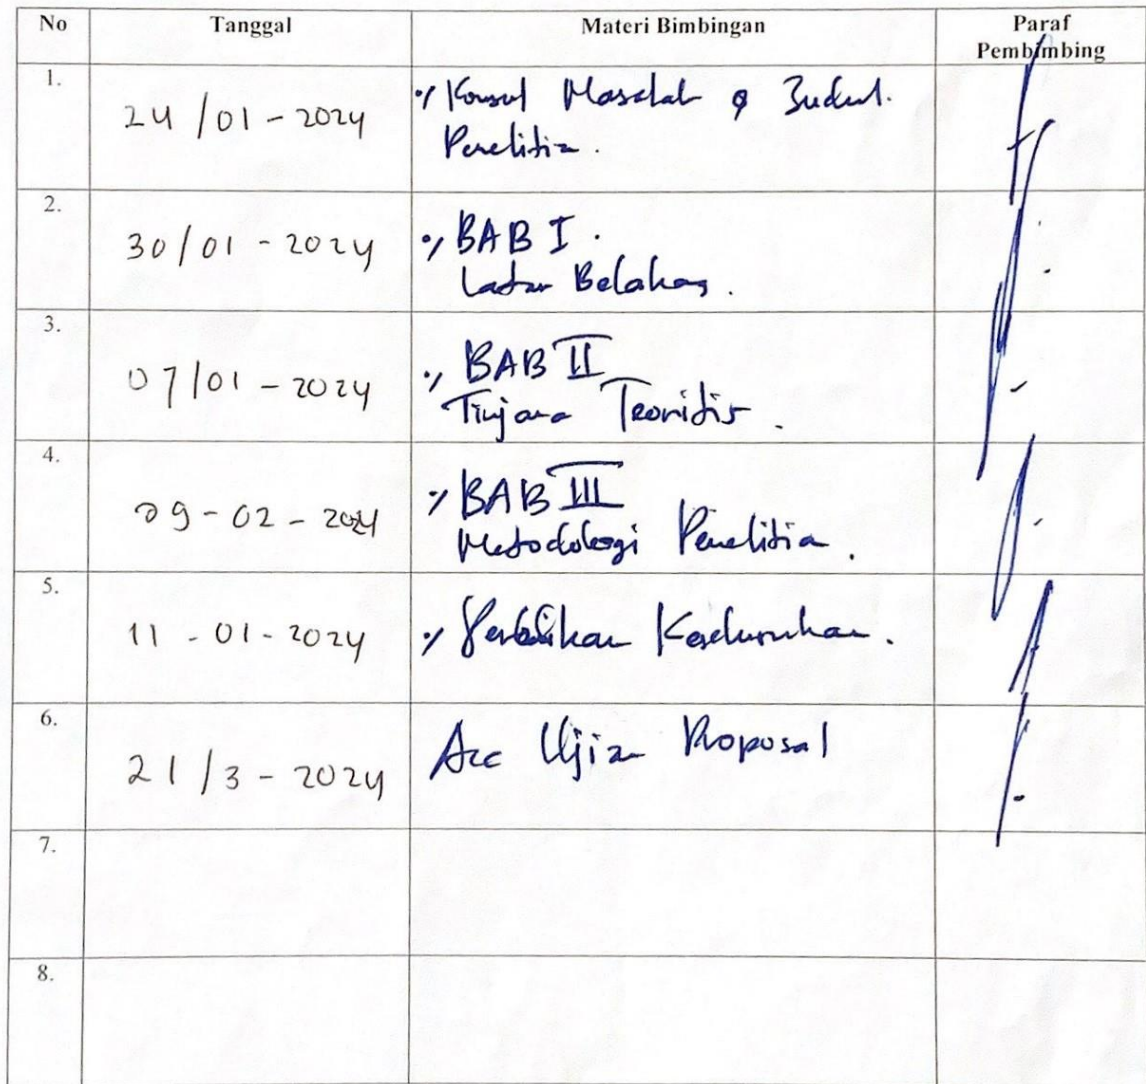 No Tanggal Materi Bimbingan Paraf
Pembimbing
1.
24/01-2024 Konsul Masalah & Judul.
Penelitian.
2.
30/01-2024 BAB I.
Latar Belakang.
3.
07/01-2024 BAB II
Tinjauan Teoritis.
4.
09-02-2024 BAB III
Metodologi Penelitian.
5.
11-01-2024 Perbaikan Keseluruhan.
6.
21/3-2024 Acc Ujian Proposal
7.
8.